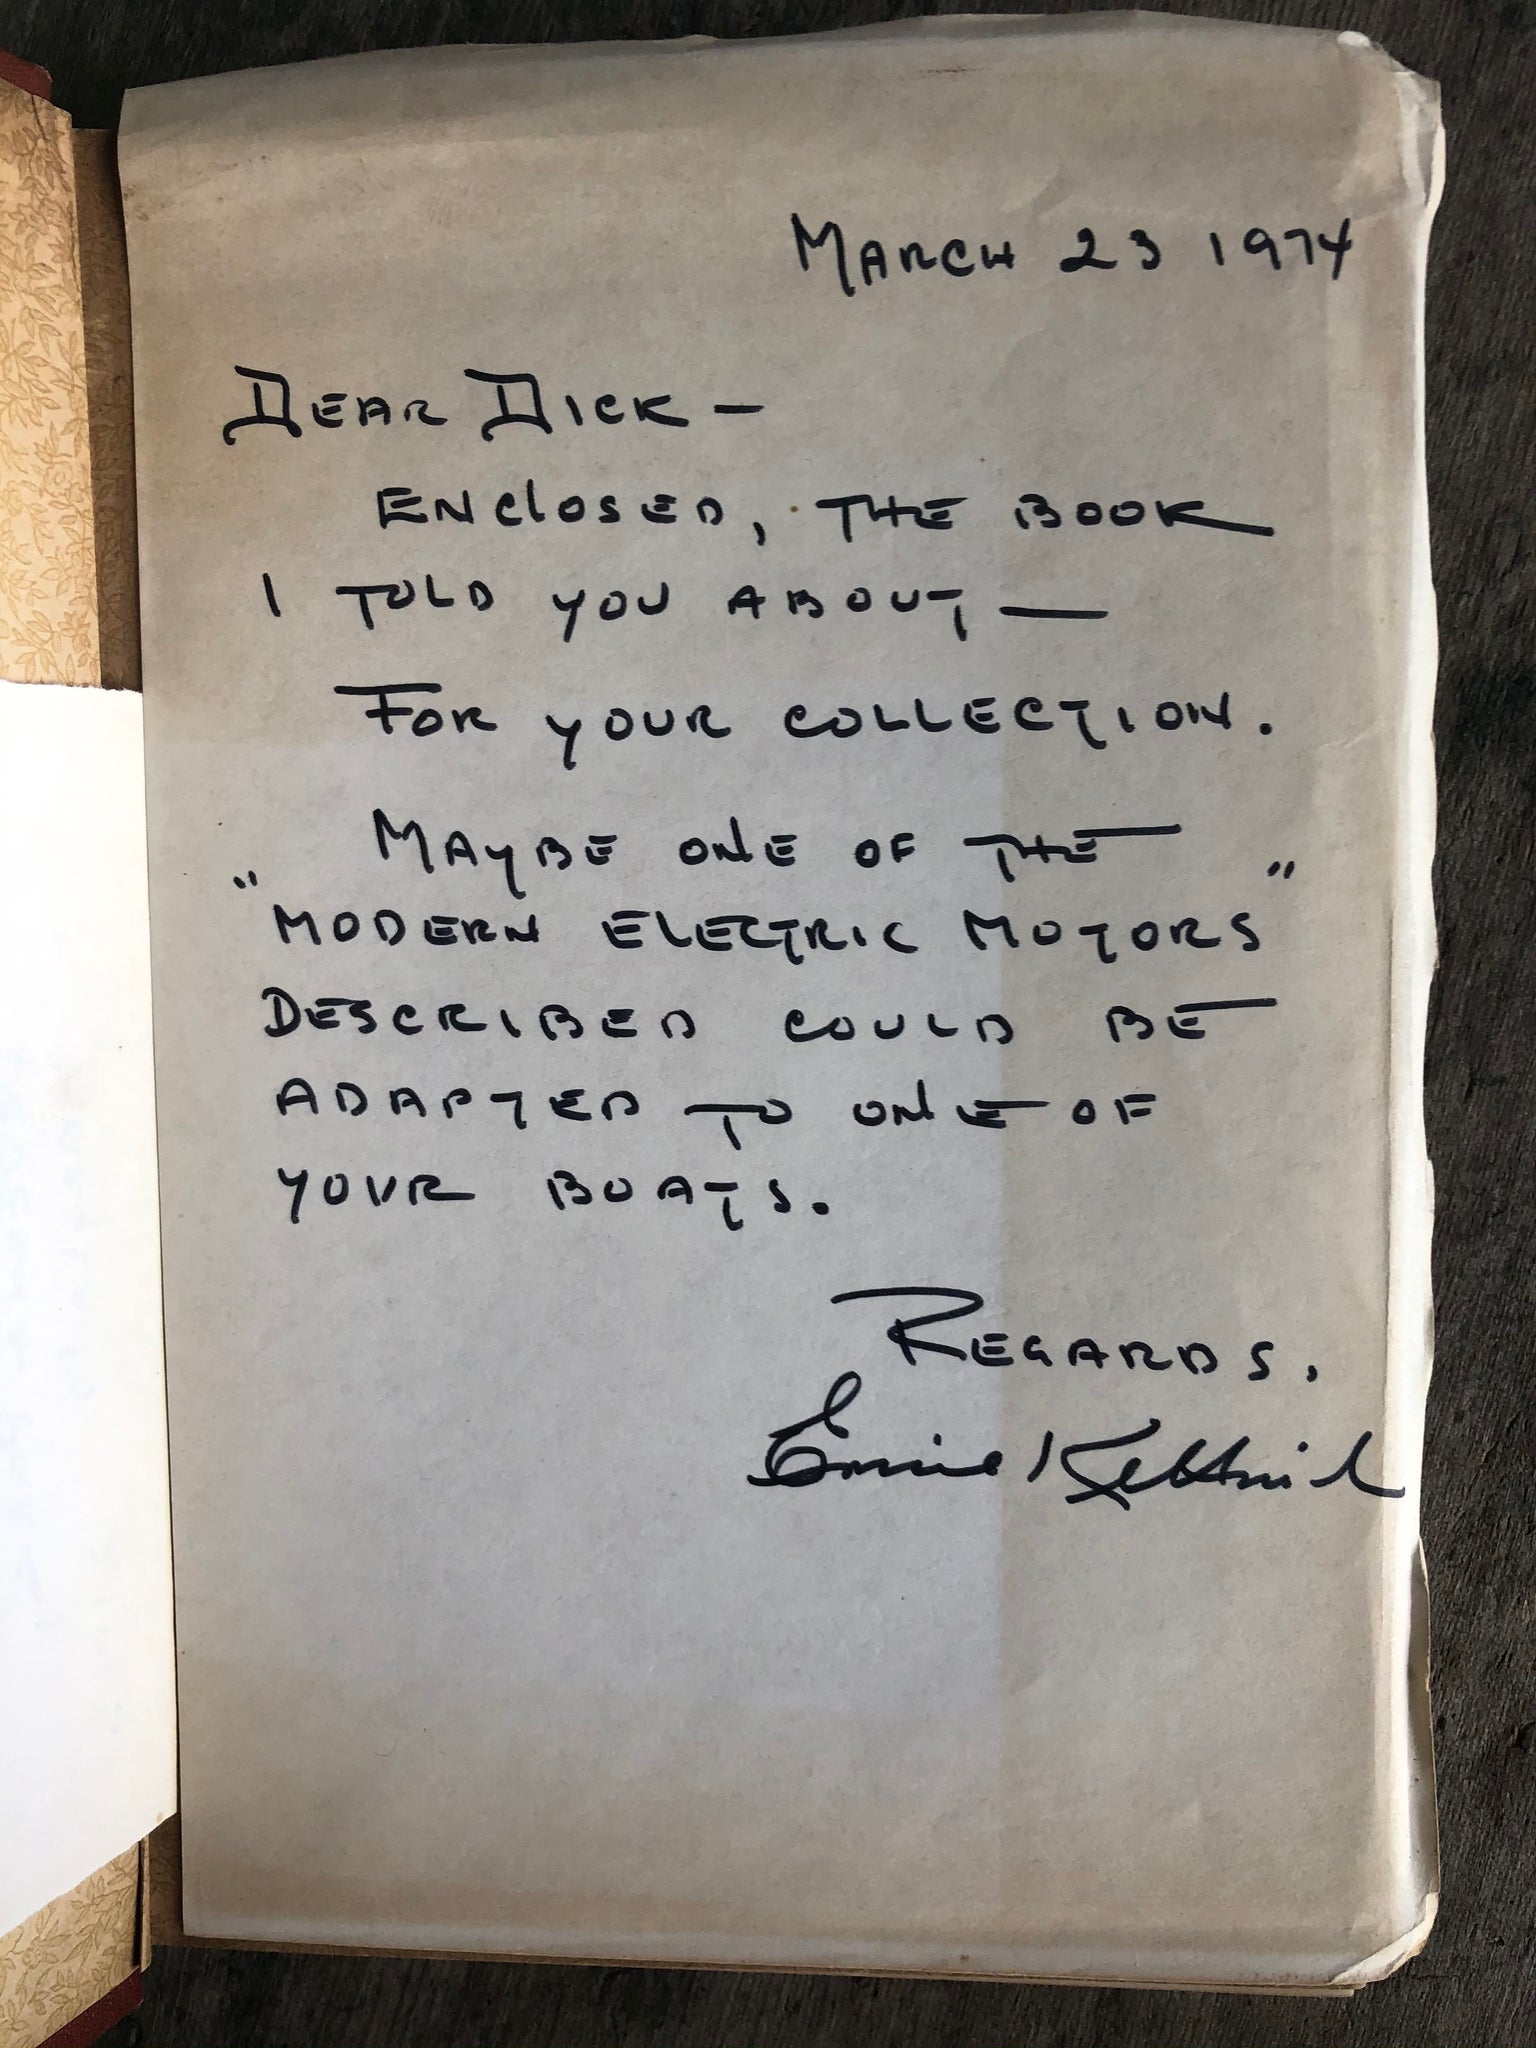 MARCH 23 1974
DEAR DICK —
ENCLOSED, THE BOOK
I TOLD YOU ABOUT —
FOR YOUR COLLECTION.
MAYBE ONE OF THE
"MODERN ELECTRIC MOTORS"
DESCRIBED COULD BE
ADAPTED TO ONE OF
YOUR BOATS.
REGARDS,